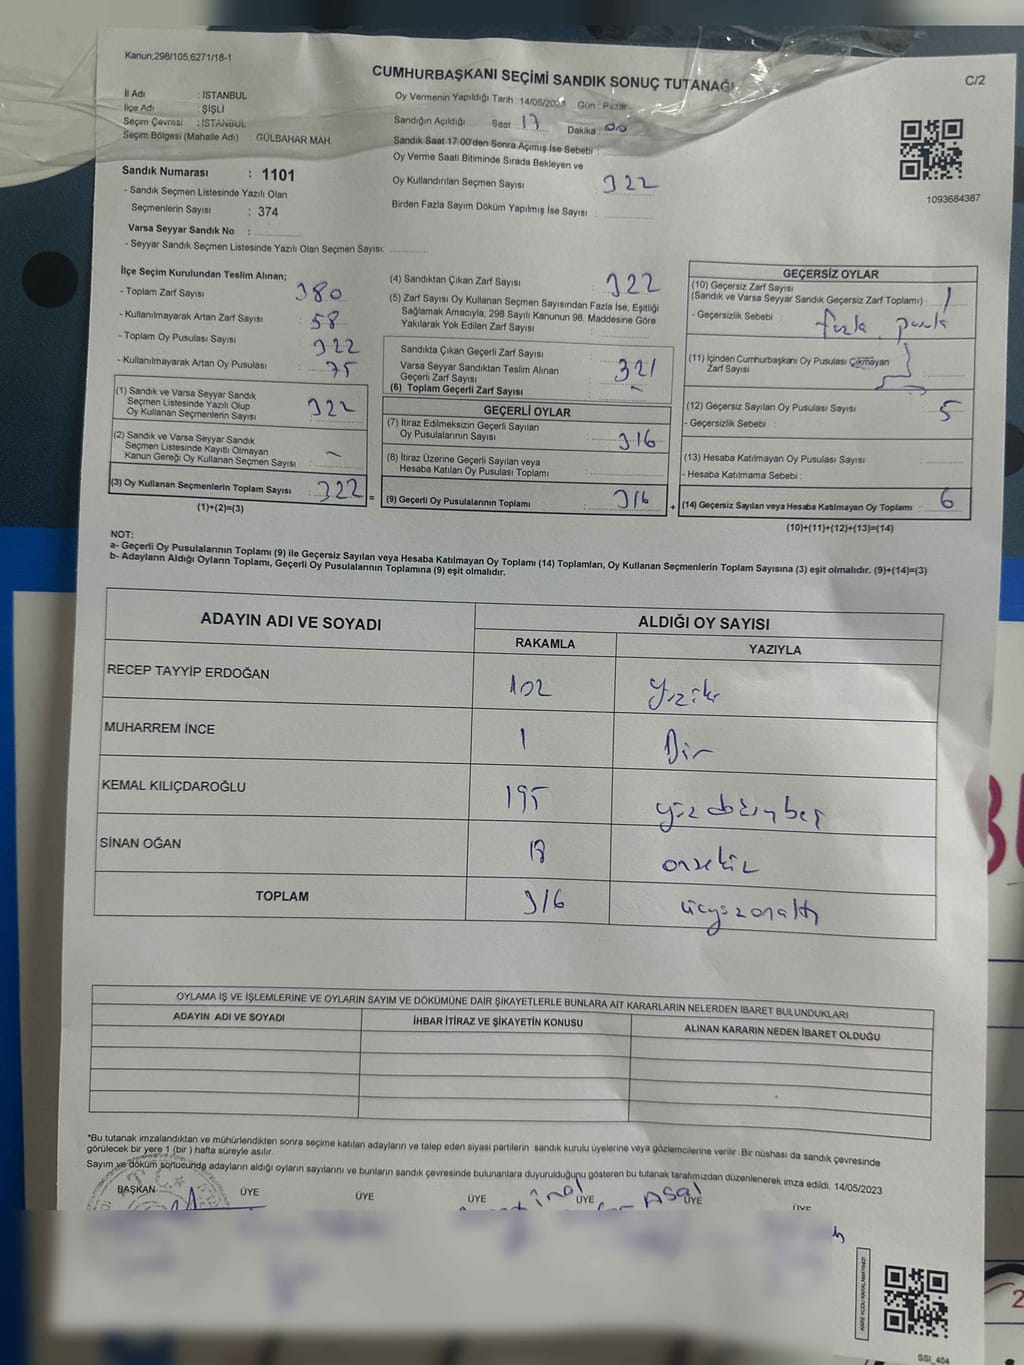 Kanun;298/105;6271/18-1
CUMHURBAŞKANI SEÇİMİ SANDIK SONUÇ TUTANAĞI
C/2
İl Adı : İSTANBUL
İlçe Adı : ŞİŞLİ
Seçim Çevresi : İSTANBUL
Seçim Bölgesi (Mahalle Adı) GÜLBAHAR MAH.
Oy Vermenin Yapıldığı Tarih : 14/05/2023 Gün : Pazar
Sandığın Açıldığı Saat 17 Dakika : 00
Sandık Saat 17:00'den Sonra Açımış İse Sebebi :
Oy Verme Saati Bitiminde Sırada Bekleyen ve
Oy Kullandırılan Seçmen Sayısı 322
Birden Fazla Sayım Döküm Yapılmış İse Sayısı :
1093684387
Sandık Numarası : 1101
- Sandık Seçmen Listesinde Yazılı Olan
Seçmenlerin Sayısı : 374
Varsa Seyyar Sandık No :
- Seyyar Sandık Seçmen Listesinde Yazılı Olan Seçmen Sayısı:
İlçe Seçim Kurulundan Teslim Alınan;
- Toplam Zarf Sayısı 380
- Kullanılmayarak Artan Zarf Sayısı : 58
- Toplam Oy Pusulası Sayısı : 322
- Kullanılmayarak Artan Oy Pusulası : 75
(1) Sandık ve Varsa Seyyar Sandık
Seçmen Listesinde Yazılı Olup
Oy Kullanan Seçmenlerin Sayısı : 322
(2) Sandık ve Varsa Seyyar Sandık
Seçmen Listesinde Kayıtlı Olmayan
Kanun Gereği Oy Kullanan Seçmen Sayısı : -
(3) Oy Kullanan Seçmenlerin Toplam Sayısı : 322 =
(1)+(2)=(3)
(4) Sandıktan Çıkan Zarf Sayısı : 322
(5) Zarf Sayısı Oy Kullanan Seçmen Sayısından Fazla İse, Eşitliği
Sağlamak Amacıyla; 298 Sayılı Kanunun 98. Maddesine Göre
Yakılarak Yok Edilen Zarf Sayısı :
Sandıkta Çıkan Geçerli Zarf Sayısı :
Varsa Seyyar Sandıktan Teslim Alınan
Geçerli Zarf Sayısı : 321
(6) Toplam Geçerli Zarf Sayısı : -
GEÇERLİ OYLAR
(7) İtiraz Edilmeksizin Geçerli Sayılan
Oy Pusulalarının Sayısı : 316
(8) İtiraz Üzerine Geçerli Sayılan veya
Hesaba Katılan Oy Pusulası Toplamı :
(9) Geçerli Oy Pusulalarının Toplamı : 316 +
GEÇERSİZ OYLAR
(10) Geçersiz Zarf Sayısı
(Sandık ve Varsa Seyyar Sandık Geçersiz Zarf Toplamı) : 1
- Geçersizlik Sebebi : fazla pusula
(11) İçinden Cumhurbaşkanı Oy Pusulası Çıkmayan
Zarf Sayısı :
(12) Geçersiz Sayılan Oy Pusulası Sayısı : 5
- Geçersizlik Sebebi :
(13) Hesaba Katılmayan Oy Pusulası Sayısı :
- Hesaba Katılmama Sebebi :
(14) Geçersiz Sayılan veya Hesaba Katılmayan Oy Toplamı : 6
(10)+(11)+(12)+(13)=(14)
NOT:
a- Geçerli Oy Pusulalarının Toplamı (9) ile Geçersiz Sayılan veya Hesaba Katılmayan Oy Toplamı (14) Toplamları, Oy Kullanan Seçmenlerin Toplam Sayısına (3) eşit olmalıdır. (9)+(14)=(3)
b- Adayların Aldığı Oyların Toplamı, Geçerli Oy Pusulalarının Toplamına (9) eşit olmalıdır.
ADAYIN ADI VE SOYADI
ALDIĞI OY SAYISI
RAKAMLA
YAZIYLA
RECEP TAYYİP ERDOĞAN 102 Yüziki
MUHARREM İNCE 1 Bir
KEMAL KILIÇDAROĞLU 195 yüzdoksanbeş
SİNAN OĞAN 18 onsekiz
TOPLAM 316 üçyüzonaltı
OYLAMA İŞ VE İŞLEMLERİNE VE OYLARIN SAYIM VE DÖKÜMÜNE DAİR ŞİKAYETLERLE BUNLARA AİT KARARLARIN NELERDEN İBARET BULUNDUKLARI
ADAYIN ADI VE SOYADI
İHBAR İTİRAZ VE ŞİKAYETİN KONUSU
ALINAN KARARIN NEDEN İBARET OLDUĞU
*Bu tutanak imzalandıktan ve mühürlendikten sonra seçime katılan adayların ve talep eden siyasi partilerin sandık kurulu üyelerine veya gözlemcilerine verilir. Bir nüshası da sandık çevresinde
görülecek bir yere 1 (bir ) hafta süreyle asılır.
Sayım ve döküm sonucunda adayların aldığı oyların sayılarını ve bunların sandık çevresinde bulunanlara duyurulduğunu gösteren bu tutanak tarafımızdan düzenlenerek imza edildi. 14/05/2023
BAŞKAN ÜYE ÜYE ÜYE ÜYE ÜYE ÜYE
KARE KODU KARALAMAYINIZ!
SSI_404